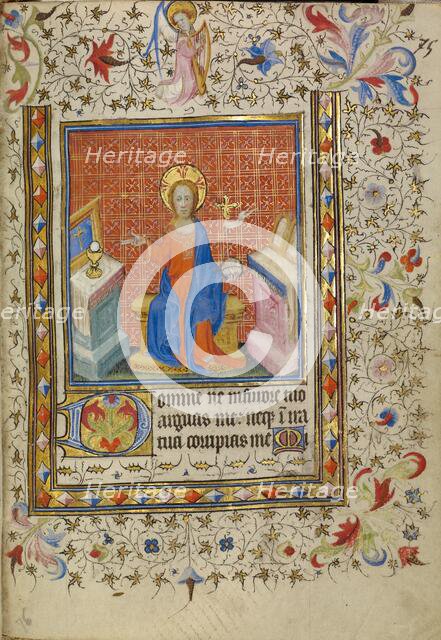 Heritage Heritage
Heritage Heritage
Domine ne in furore tuo
arguas me: neqz ī ira
tua corripias me Mi
Heritage Heritage